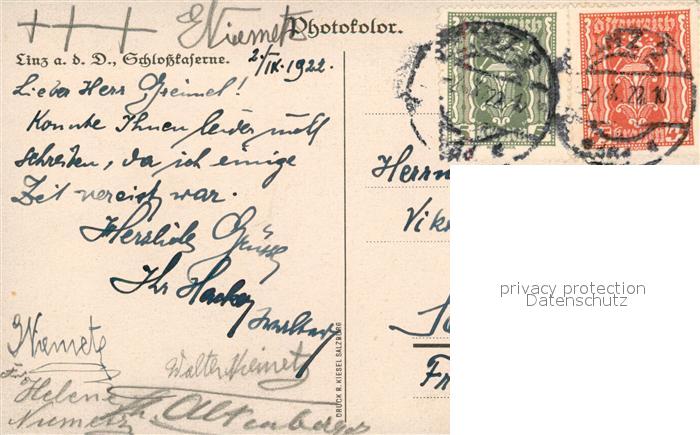 +++ Niemetz Photokolor.
Linz a. d. D., Schloßkaserne. 2./IX. 1922.
Lieber Herr
Konnte Ihnen leider nicht
schreiben, da ich einige
Zeit verreist war.
Herzliche Grüße
Ihr
Niemetz
Walter Niemetz
Helene
Niemetz
Altenberger
DRUCK R. KIESEL SALZBURG
Österreich
LINZ 2
Herrn
Fr
privacy protection
Datenschutz